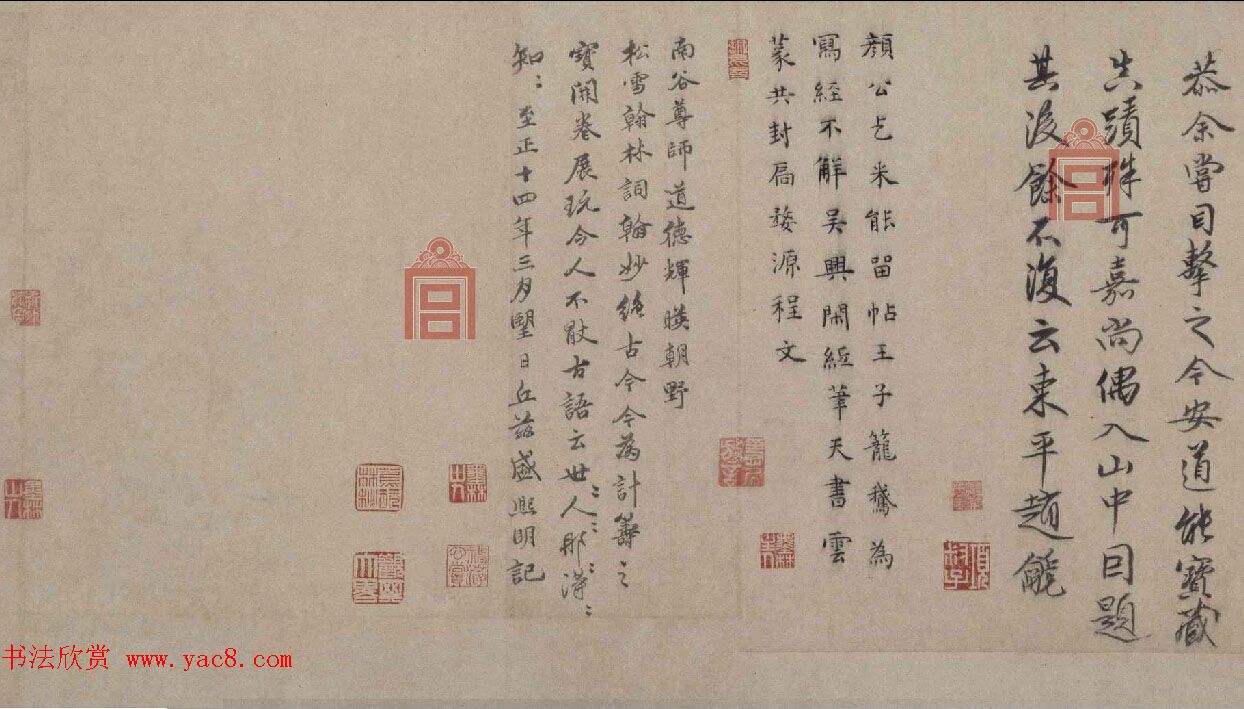 恭余嘗目擊之今安道能寶藏
真蹟殊可嘉尚偶入山中因題
其後餘不復云東平趙
顏公乞米能留帖王子籠鵝為
寫經不解吳興閑紙筆天書雲
篆共封扃婺源程文
南谷尊師道德輝暎朝野
松雪翰林詞翰妙絕古今今為計籌之
寶開卷展玩令人不厭古語云世人那得
知〻至正十四年三月朢日丘兹盛熙明記
書法欣賞 www.yac8.com